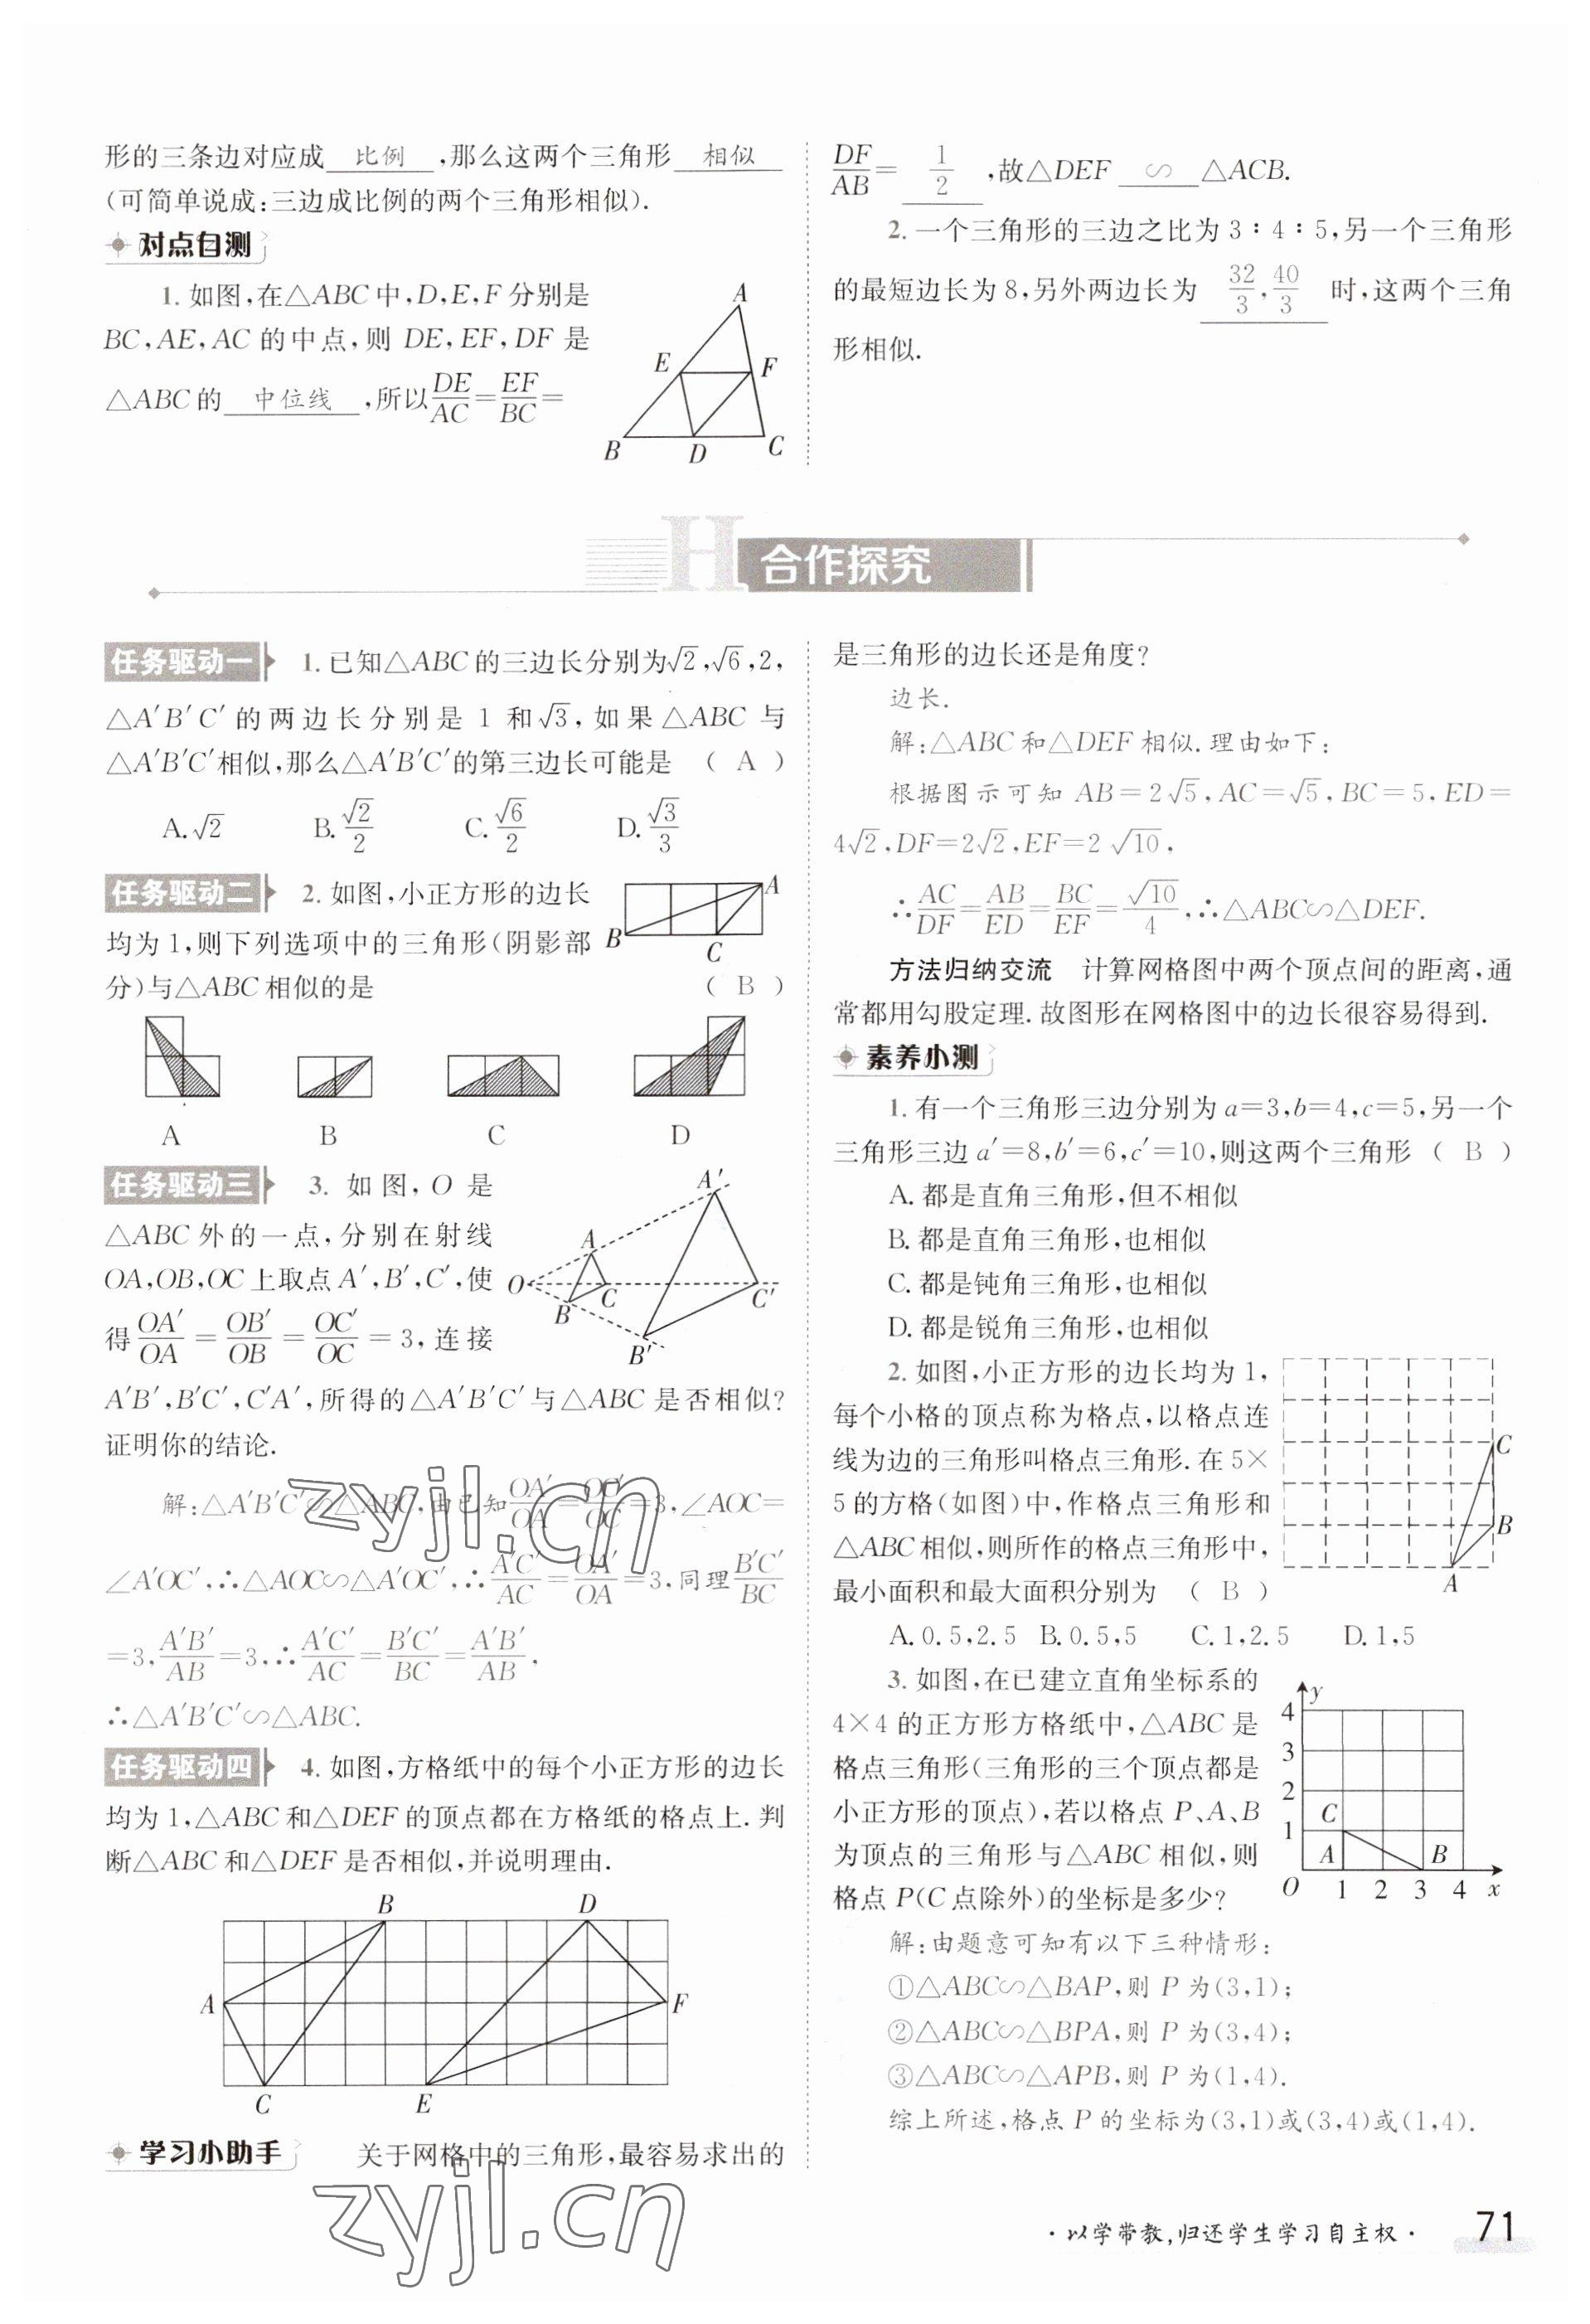 形的三条边对应成 比例 ,那么这两个三角形 相似
(可简单说成:三边成比例的两个三角形相似).
对点自测
1. 如图,在△ABC中,D,E,F分别是
BC,AE,AC 的中点,则 DE,EF,DF 是
△ABC的 中位线 ,所以DE/AC=EF/BC=
A
E
F
B
D
C
DF/AB= 1/2 ,故△DEF ∽ △ACB.
2. 一个三角形的三边之比为 3∶4∶5,另一个三角形
的最短边长为8,另外两边长为 32/3,40/3 时,这两个三角
形相似.
H 合作探究
任务驱动一 1. 已知△ABC的三边长分别为√2,√6,2,
△A′B′C′的两边长分别是 1 和√3,如果△ABC 与
△A′B′C′相似,那么△A′B′C′的第三边长可能是 ( A )
A.√2 B.√2/2 C.√6/2 D.√3/3
任务驱动二 2. 如图,小正方形的边长
均为1,则下列选项中的三角形(阴影部
分)与△ABC相似的是 ( B )
A
B
C
A B C D
任务驱动三 3. 如图,O 是
△ABC 外的一点,分别在射线
OA,OB,OC上取点A′,B′,C′,使
得OA′/OA=OB′/OB=OC′/OC=3,连接
A′B′,B′C′,C′A′,所得的△A′B′C′与△ABC是否相似?
证明你的结论.
A′
A
O
C
C′
B
B′
解:△A′B′C′∽△ABC,由已知OA′/OA=OC′/OC=3,∠AOC=
∠A′OC′,∴△AOC∽△A′OC′,∴A′C′/AC=OA′/OA=3,同理B′C′/BC
=3,A′B′/AB=3,∴A′C′/AC=B′C′/BC=A′B′/AB,
∴△A′B′C′∽△ABC.
任务驱动四 4. 如图,方格纸中的每个小正方形的边长
均为1,△ABC和△DEF的顶点都在方格纸的格点上.判
断△ABC和△DEF是否相似,并说明理由.
B D
A F
C E
学习小助手 关于网格中的三角形,最容易求出的
是三角形的边长还是角度?
边长.
解:△ABC和△DEF相似.理由如下:
根据图示可知 AB=2√5,AC=√5,BC=5,ED=
4√2,DF=2√2,EF=2√10,
∴AC/DF=AB/ED=BC/EF=√10/4,∴△ABC∽△DEF.
方法归纳交流 计算网格图中两个顶点间的距离,通
常都用勾股定理.故图形在网格图中的边长很容易得到.
素养小测
1. 有一个三角形三边分别为a=3,b=4,c=5,另一个
三角形三边a′=8,b′=6,c′=10,则这两个三角形 ( B )
A. 都是直角三角形,但不相似
B. 都是直角三角形,也相似
C. 都是钝角三角形,也相似
D. 都是锐角三角形,也相似
2. 如图,小正方形的边长均为1,
每个小格的顶点称为格点,以格点连
线为边的三角形叫格点三角形.在5×
5的方格(如图)中,作格点三角形和
△ABC相似,则所作的格点三角形中,
最小面积和最大面积分别为 ( B )
C
B
A
A. 0.5,2.5 B. 0.5,5 C. 1,2.5 D. 1,5
3. 如图,在已建立直角坐标系的
4×4的正方形方格纸中,△ABC是
格点三角形(三角形的三个顶点都是
小正方形的顶点),若以格点P、A、B
为顶点的三角形与△ABC相似,则
格点P(C点除外)的坐标是多少?
y
4
3
2
C
1
A B
O 1 2 3 4 x
解:由题意可知有以下三种情形:
①△ABC∽△BAP,则 P 为(3,1);
②△ABC∽△BPA,则 P 为(3,4);
③△ABC∽△APB,则 P 为(1,4).
综上所述,格点P的坐标为(3,1)或(3,4)或(1,4).
zyjl.cn
zyjl.cn
·以学带教,归还学生学习自主权· 71